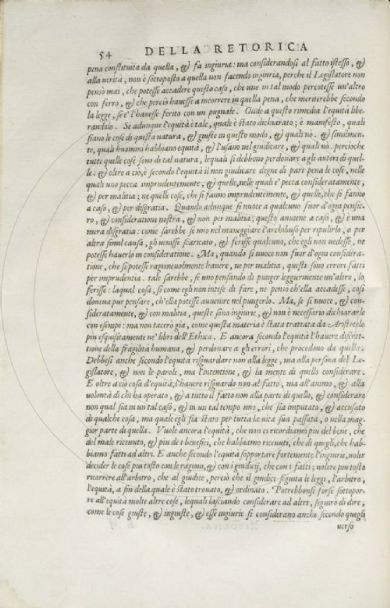 54 DELLA RETORICA
pena constituita da quella, & fa ingiuria: ma considerandosi al fatto istesso, &
alla verità, non è sottoposto a quella non facendo ingiuria, perche il Legislatore non
pensò mai, che potesse accadere questo caso, che uno in tal modo percotesse un'altro
con ferro, & che perciò havesse a incorrere in quella pena, che meriterebbe secondo
la legge, se e' l'havesse ferito con un pugnale. Onde a questo rimedia l'equità libe-
randolo. Se adunque l'equità è tale, quale è stato dichiarato; è manifesto, quali
siano le cose di questa natura, & giuste in questo modo, & quali nò. & similmen-
te, quali huomini habbiano equità, & l'usano nel giudicare, & quali nò. percioche
tutte quelle cose sono di tal natura, lequali si debbono perdonare a gli autori di quel-
le: & oltre a ciò è secondo l'equità il non giudicare degne di pari pena le cose, nelle
quali uno pecca imprudentemente, & quelle, nelle quali e' pecca consideratamente,
& per malitia; ne quelle cose, che si fanno imprudentemente, & quelle, che si fanno
a caso, & per disgratia. Quando adunque si nuoce a qualcuno fuor d'ogni pensie-
ro, & consideratione nostra, & non per malitia; questo avviene a caso, & è una
mera disgratia: come sarebbe se uno nel maneggiare l'archibuso per ripulirlo, o per
altra simil causa, gli venisse scaricato, & ferisse qualcuno, che egli non vedesse, ne
potesse haverlo in consideratione. Ma, quando si nuoce non fuor d'ogni considera-
tione, che si potesse ragionevolmente havere, ne per malitia, questi sono errori fatti
per imprudentia. tale sarebbe, se uno pensando di punger leggermente un'altro, lo
ferisse: laqual cosa, sì come egli non intese di fare, ne pensò ch'ella accadesse, così
doveva pur pensare, ch'ella potesse avvenire nel pungerlo. Ma, se si nuoce, & con-
sideratamente, & con malitia, queste sono ingiurie, & non è necessario dichiararle
con esempi: ma non tacerò già, come questa materia è stata trattata da Aristotele
più esquisitamente ne' libri dell'Ethica. E ancora secondo l'equità l'havere discre-
tione della fragilità humana, & perdonare a gli errori, che procedono da quella.
Debbesi anche secondo l'equità risguardare non alla legge, ma alla persona del Le-
gislatore, & non le parole, ma l'intentione, & la mente di quello considerare.
E oltre a ciò cosa d'equità, l'havere risguardo non al fatto, ma all'animo, & alla
volontà di chi ha operato, & a tutto il fatto non alla parte di quello, & considerare
non qual sia in tal caso, & in un tal tempo uno, che sia imputato, & accusato
di qualche cosa, ma quale egli sia stato per tutta la vita sua passata, o nella mag-
gior parte di quella. Vuole ancora l'equità, che noi ci ricordiamo più del bene, che
del male ricevuto, & più de' benefici, che habbiamo ricevuti, che di quegli, che hab-
biamo fatti ad altri. E anche secondo l'equità sopportare fortemente l'ingiuria, voler
decider le cose più tosto con le ragioni, & co i giudicij, che con i fatti; volere più tosto
ricorrere all'arbitro, che al giudice, perciò che il giudice seguita le leggi, l'arbitro,
l'equità, a fin della quale è stato trovato, & ordinato. Potrebbonsi forse sottopor-
re all'equità molte altre cose, lequali lasciando considerare ad altri, seguirò di dire,
come le cose giuste, & ingiuste, & esse ingiurie si considerano anche secondo quegli
verso